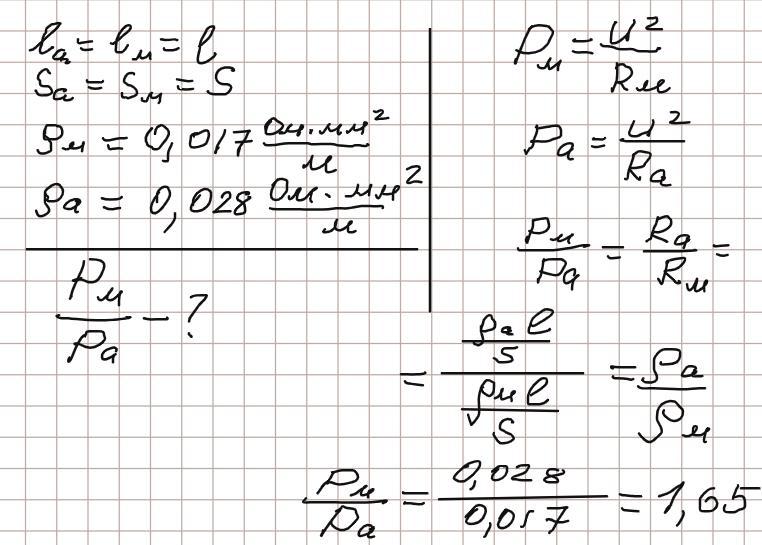 lₐ = lм = l
Sₐ = Sм = S
ρм = 0,017 Ом·мм²/м
ρа = 0,028 Ом·мм²/м
Pм/Pа – ?
Pм = U²/Rм
Pа = U²/Rа
Pм/Pа = Rа/Rм =
= (ρа l/S)/(ρм l/S) = ρа/ρм
Pм/Pа = 0,028/0,017 = 1,65